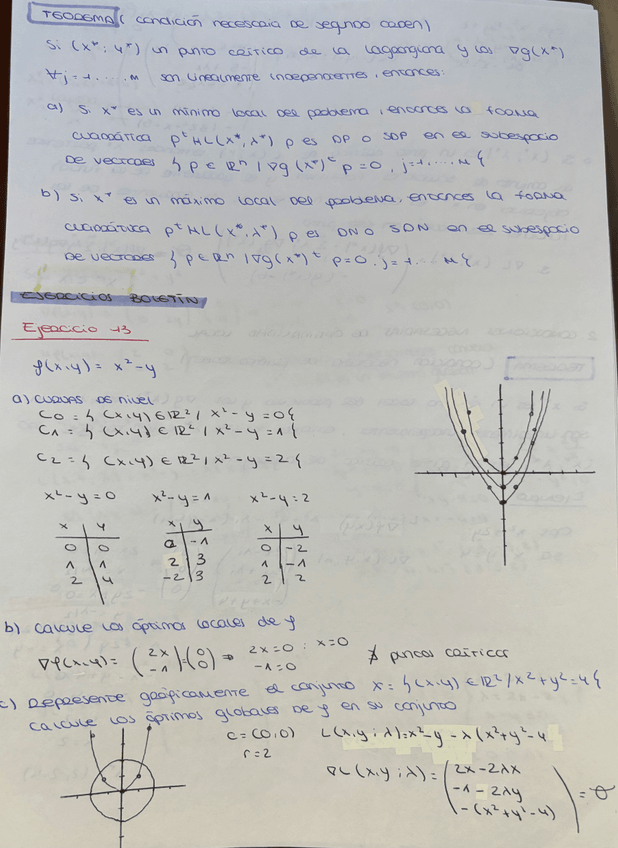 TEOREMA (condición necesaria de segundo orden)
Si (x*; y*) un punto crítico de la lagrangiana y los ∇g(x*)
∀j=1.....m son linealmente independientes, entonces:
a) Si x* es un mínimo local del problema, entonces la forma
cuadrática pᵗ HL(x*,λ*) p es DP o SDP en el subespacio
de vectores { p ∈ ℝⁿ / ∇g(x*)ᵗ p = 0, j=1,....m {
b) Si x* es un máximo local del problema, entonces la forma
cuadrática pᵗ HL(x*,λ*) p es DN o SDN en el subespacio
de vectores { p ∈ ℝⁿ / ∇g(x*)ᵗ p = 0, j=1....m {
EJERCICIOS BOLETÍN
Ejercicio 13
f(x,y) = x² - y
a) curvas de nivel
C0 = { (x,y) ∈ ℝ² / x² - y = 0 {
C1 = { (x,y) ∈ ℝ² / x² - y = 1 {
C2 = { (x,y) ∈ ℝ² / x² - y = 2 {
x² - y = 0 x² - y = 1 x² - y = 2
x y x y x y
0 0 0 -1 0 -2
1 1 2 3 1 -1
2 4 -2 3 2 2
b) calcule los óptimos locales de f
∇f(x,y) = (2x -1) = (0 0) ⇒ 2x=0 : x=0 -1=0 ∄ puntos críticos
c) Represente gráficamente el conjunto x = { (x,y) ∈ ℝ² / x² + y² = 4 {
calcule los óptimos globales de f en su conjunto
c = (0,0) L(x,y;λ) = x² - y - λ(x² + y² - 4
r = 2
∇L(x,y;λ) = (2x - 2λx
-1 - 2λy
-(x² + y² - 4)) = θ